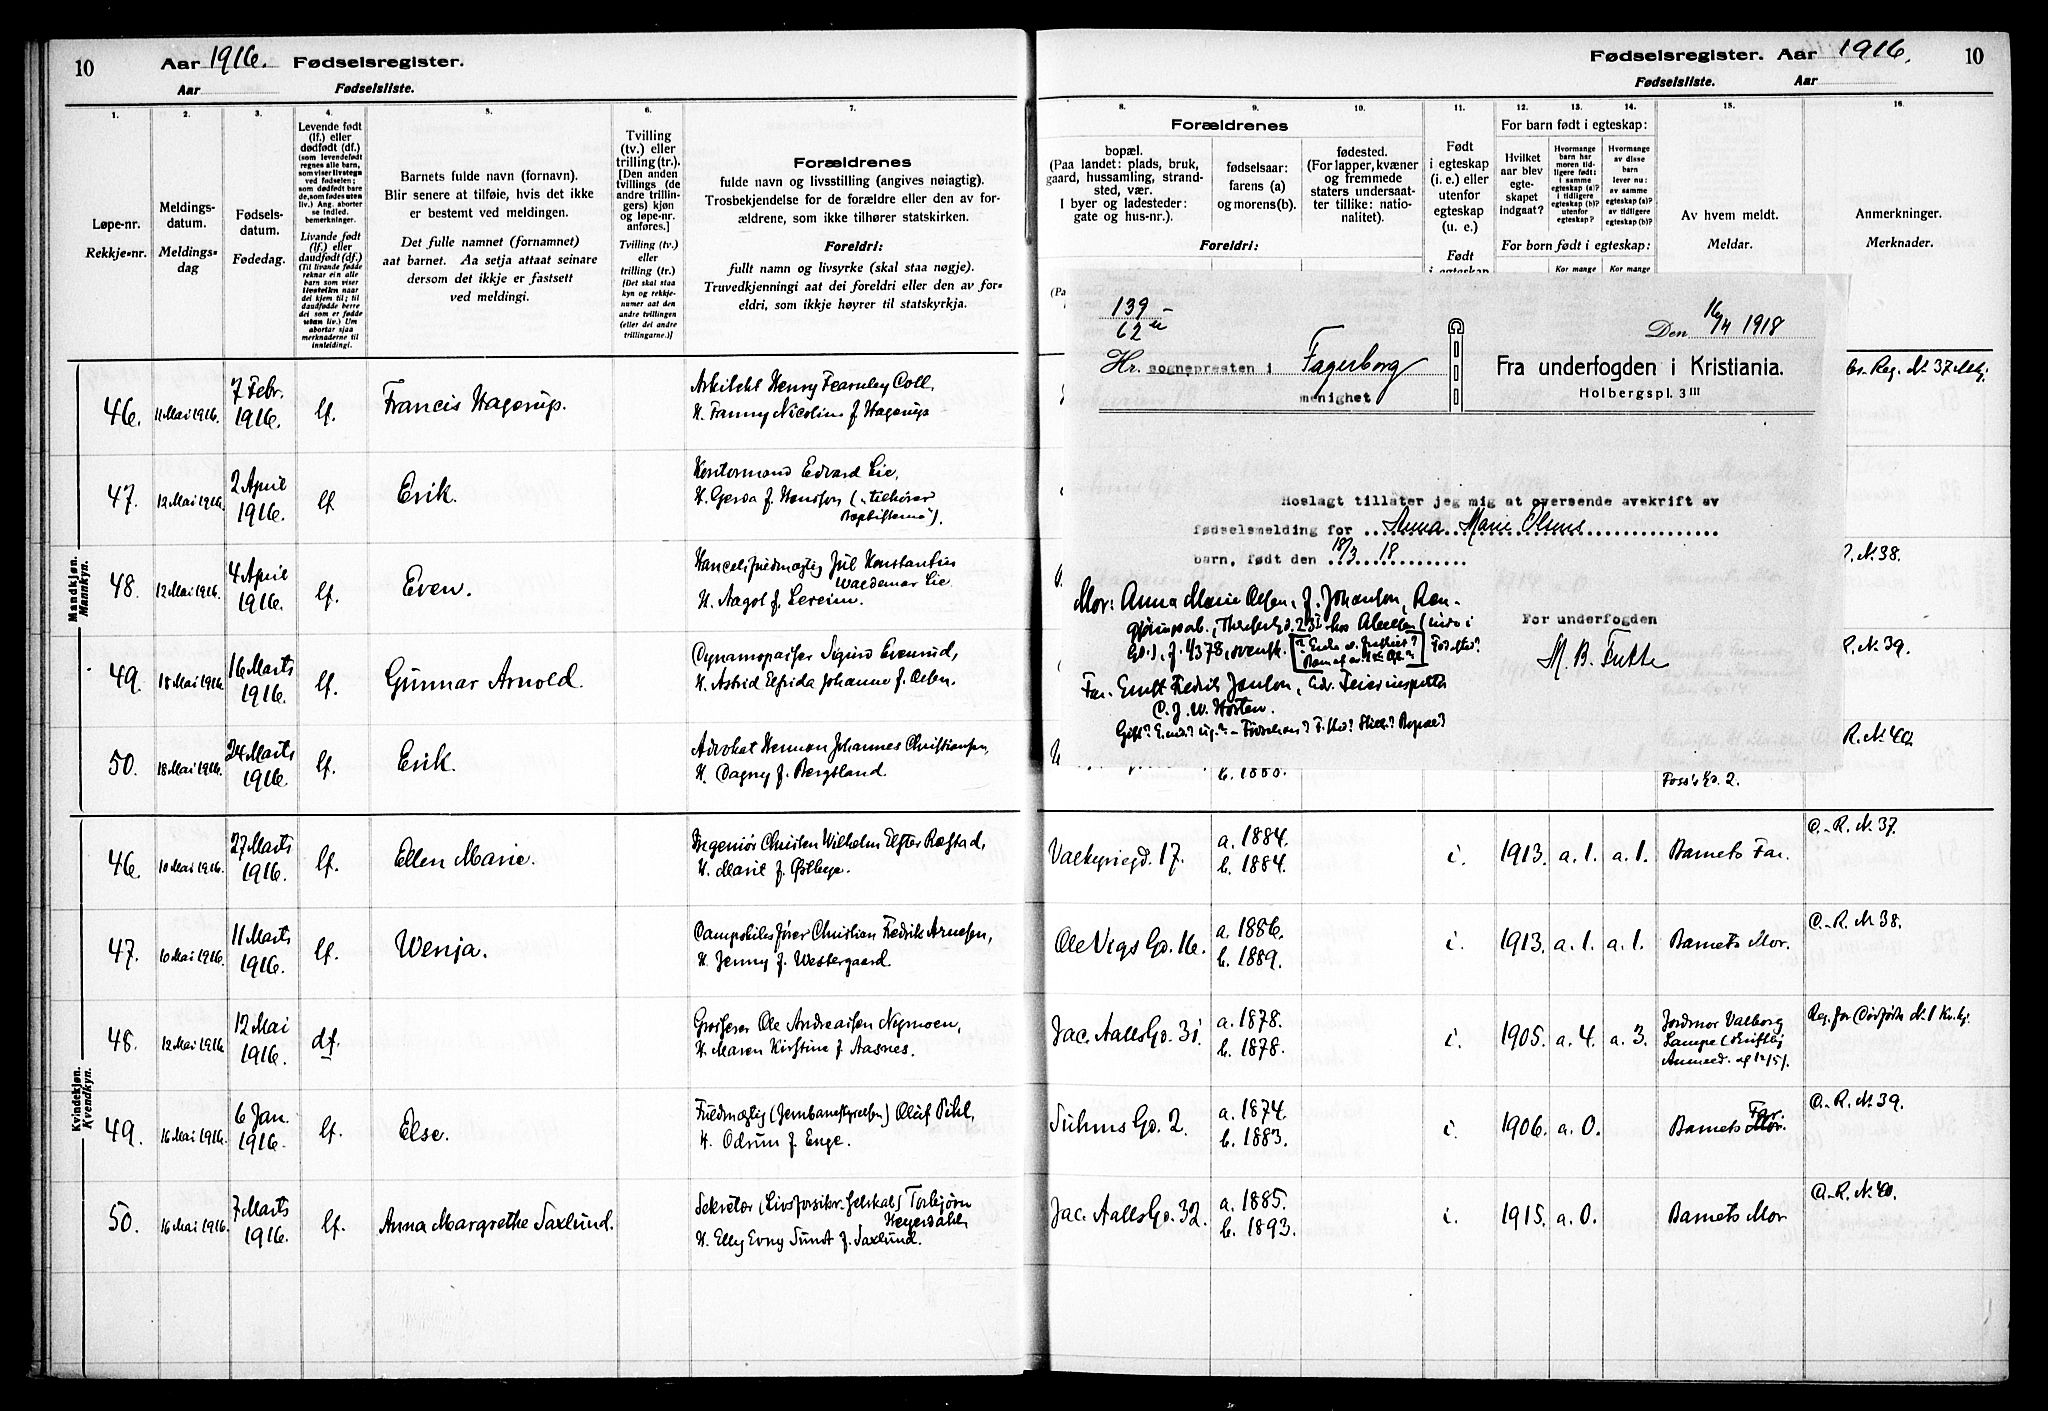 10 Aar 1916. Fødselsregister.
Aar Fødselsliste.
1. 2. 3. 4. 5. 6. 7.
Løpe-nr.
Rekkje-nr.
Meldings-
datum.
Meldings-
dag
Fødsels-
datum.
Fødedag.
Levende født
(lf.) eller
dødfødt (df.)
Levande fødd
(lf.) eller
daudfødd (df.)
Barnets fulde navn (fornavn).
Blir senere at tilføie, hvis det ikke
er bestemt ved meldingen.
Det fulle namnet (fornamnet)
aat barnet. Aa setja attaat seinare
dersom det ikkje er fastsett
ved meldingi.
Tvilling
(tv.) eller
trilling (tr.).
[Den anden
tvillings (de
andre trillin-
gers) kjøn
og løpe-nr.
anføres.]
Tvilling (tv.)
eller
trilling (tr.)
[Det skal staa
kyn og rekkje-
numer aat den
andre tvillingen
(eller dei andre
trillingarne.)]
Forældrenes
fulde navn og livsstilling (angives nøiagtig).
Trosbekjendelse for de forældre eller den av for-
ældrene, som ikke tilhører statskirken.
Foreldri:
fullt namn og livsyrke (skal staa nøgje).
Truvedkjenningi aat dei foreldri eller den av for-
eldri, som ikkje høyrer til statskyrkja.
Mandkjøn.
Mannkyn.
46. 11 Mai 1916. 7 Febr. 1916. lf. Francis Hagerup. Arkitekt Henry Fearnley Coll,
H. Fanny Nicoline f. Hagerup
47. 12 Mai 1916. 2 April 1916. lf. Erik. Kontormand Edvard Lie,
H. Gerda f. Hansson (tilhører
Baptisterne).
48. 12 Mai 1916. 4 April 1916. lf. Even. Jul Konstantius
Waldemar Lie
H. Aagot f. Lereim.
49. 18 Mai 1916. 16 Marts 1916. lf. Gunnar Arnold. Dynamopasser Sigurd Evensen,
H. Astrid Elfrida Johanne f. Olsen.
50. 18 Mai 1916. 24 Marts 1916. lf. Erik. Advokat Herman Johannes Christiansen,
H. Dagny f. Bergsland.
Kvindekjøn.
Kvendkyn.
46. 10 Mai 1916. 27 Marts 1916. lf. Ellen Marie. Ingeniør Christen Wilhelm Elster Ræstad,
H. Marie f. Østbye.
47. 10 Mai 1916. 11 Marts 1916. lf. Wenja. Dampskibsfører Christian Fredrik Arnesen,
H. Jenny f. Westergaard.
48. 12 Mai 1916. 12 Mai 1916. df. Grosserer Ole Andreassen Nygmoen,
H. Maren Kirstine f. Aasnes.
49. 16 Mai 1916. 6 Jan. 1916. lf. Else. Fuldmægtig (Jernbanestyrelsen) Oluf Pihl,
H. Odrun f. Enge.
50. 16 Mai 1916. 7 Marts 1916. lf. Anna Margrethe Saxlund. Sekretær (Livsforsikr. Selskab) Torbjørn
Heyerdahl,
H. Elly Evny Sundt f. Saxlund.
Fødselsregister. Aar 1916. 10
Fødselsliste. Aar
8. 9. 10. 11. 12. 13. 14. 15. 16.
Forældrenes
bopæl.
(Paa landet: plads, bruk,
gaard, hussamling, strand-
sted, vær.
I byer og ladesteder:
gate og hus-nr.).
fødselsaar:
farens (a)
og morens (b).
fødested.
(For lapper, kvæner
og fremmede
staters undersaat-
ter tillike: natio-
nalitet).
Foreldri:
Født
i egteskap
(i. e.) eller
utenfor
egteskap
(u. e.)
Født
i egteskap
For barn født i egteskap:
Hvilket
aar blev
egte-
skapet
indgaat?
Hvormange
barn har
moren tid-
ligere født:
i samme
egteskap (a)?
utenfor
egteskap (b)?
Hvormange
av disse
barn
lever nu:
av samme
egteskap (a)?
av tidligere
egteskap (b)?
For born født i egteskap:
Kor mange
Kor mange
Av hvem meldt.
Meldar.
Anmerkninger.
Merknader.
139
62
Hr. sognepresten i Fagerborg
menighet
Den 16/4 1918
Fra underfogden i Kristiania.
Holbergspl. 3 III
Hoslagt tillater jeg mig at oversende avskrift av
fødselsmelding for Anna Marie Olsens
barn, født den 18/3 18
For underfogden
Mor: Anna Marie Olsen, f. Johanson, Ren-
gjøringsarb., 23 I hos
f. 1/3 78, svensk.
Far: Ernst Fredrik Janson, Adr. Feierinspektør
C. J. W. Horten.
Gift? Fødselsaar? F. sted? Stilling? Bopæl?
Reg. N. 37
N. 38.
R. N. 39.
R. N. 40.
b. 1880.
Foss's Gd. 2.
Valkyriegd. 17. a. 1884. b. 1884. i. 1913. a. 1. a. 1. Barnets Far. C.-R. N. 37.
Ole Vigs Gd. 16. a. 1886. b. 1889. i. 1913. a. 1. a. 1. Barnets Mor. C.-R. N. 38.
Jac. Aalls Gd. 31. a. 1878. b. 1878. i. 1905. a. 4. a. 3. Jordmor Valborg
Lampe (skriftlig
Anmeld. af 12/5).
Reg. for Dødfødte N. 1
Suhms Gd. 2. a. 1874. b. 1883. i. 1906. a. 0. Barnets Mor. Far. C.-R. N. 39.
Jac. Aalls Gd. 32. a. 1885. b. 1893. i. 1915. a. 0. Barnets Mor. C.-R. N. 40.